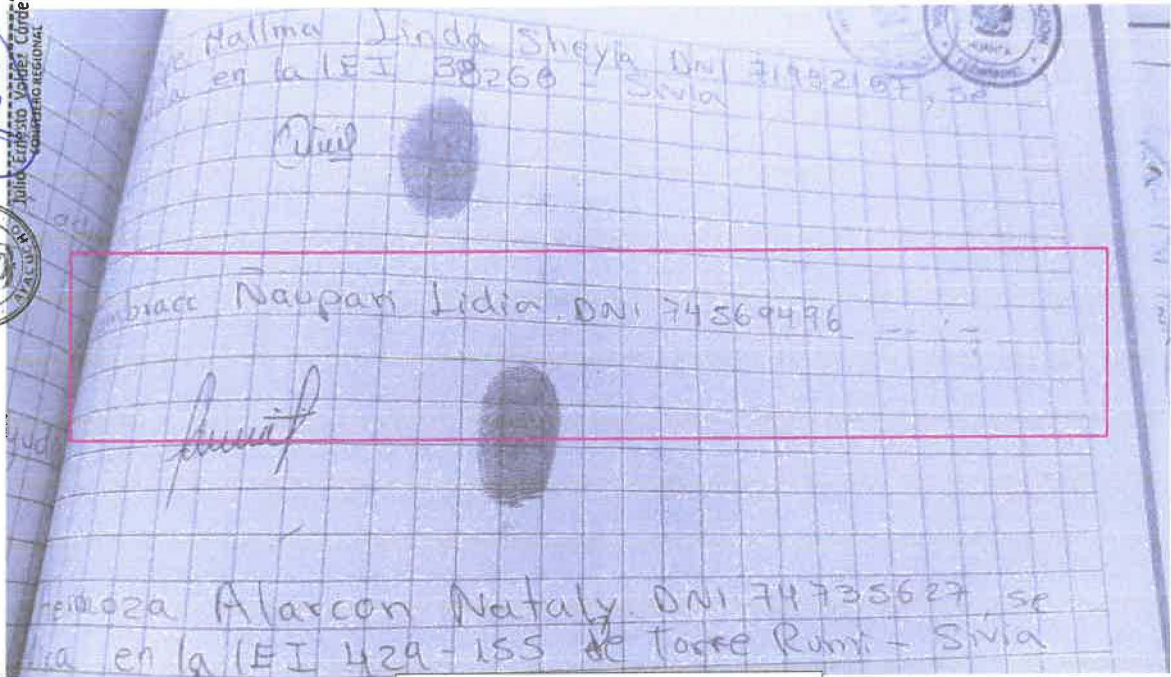 Julio Ernesto Valdez Corde
CONSEJERO REGIONAL
AYACUCHO
Mallma Linda Sheyla DNI 71952167, se
en la IEI 38260 - Sivia
Ñaupari Lidia DNI 74569496
Alarcon Nataly. DNI 74735627, se
en la IEI 429-155 de Torre Rumi - Sivia